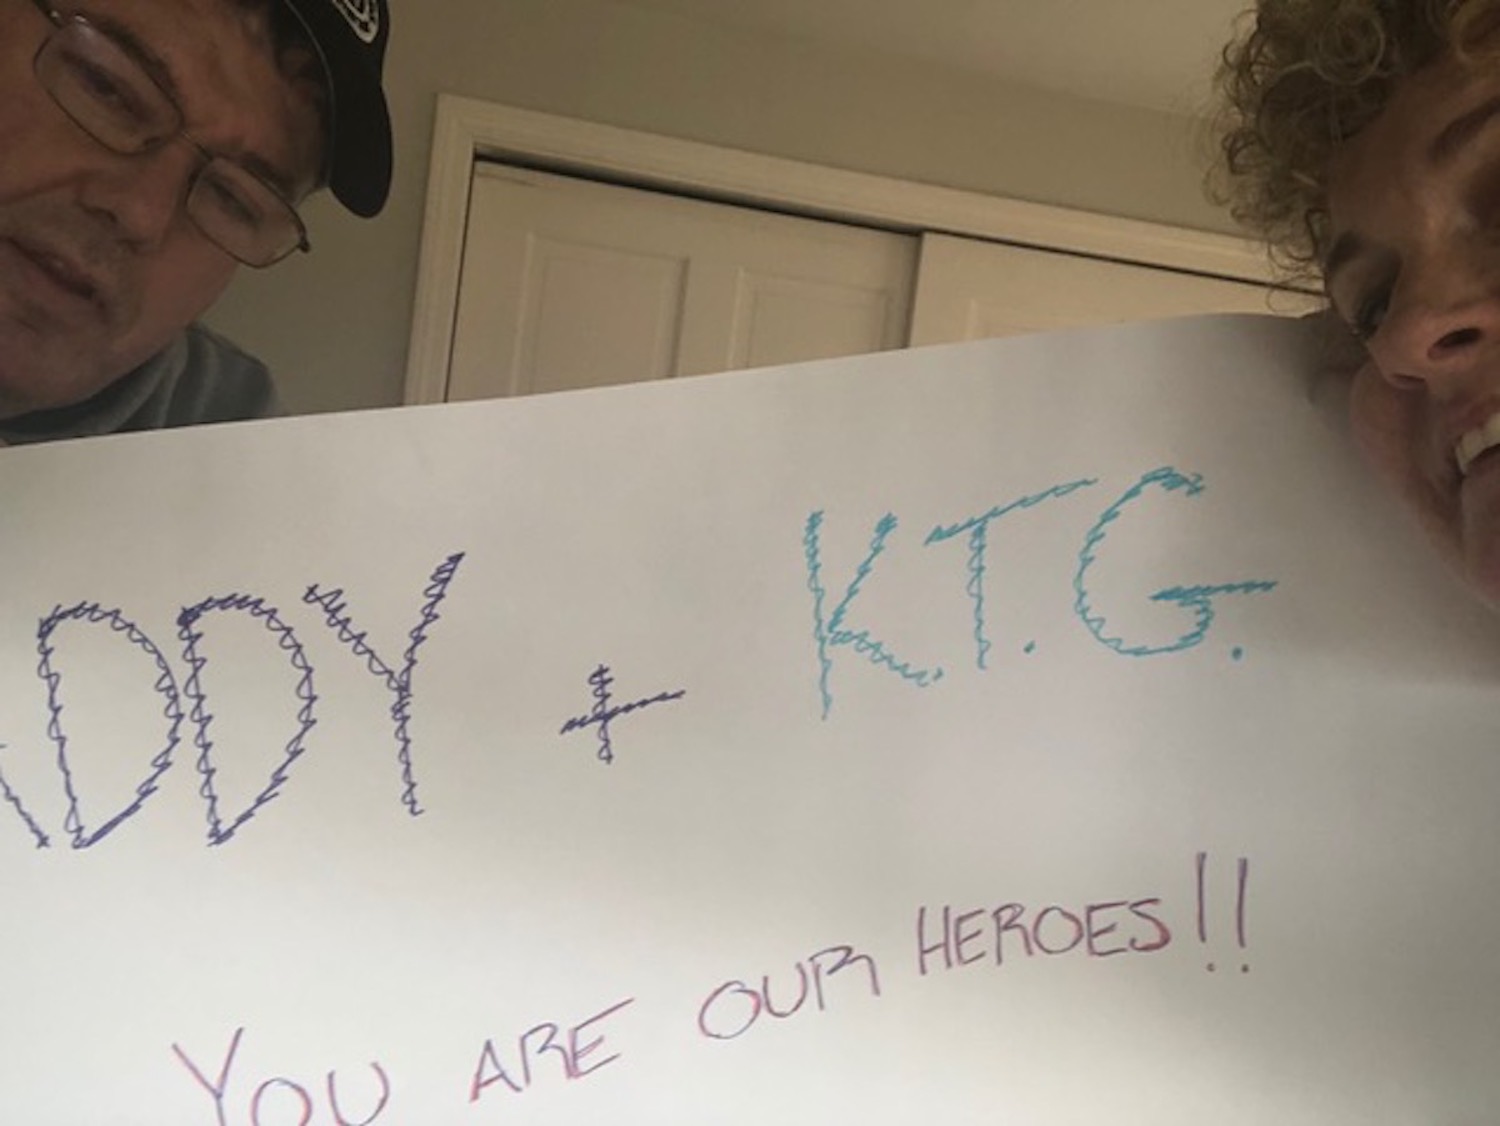 ADDY + K.T.G.
YOU ARE OUR HEROES!!